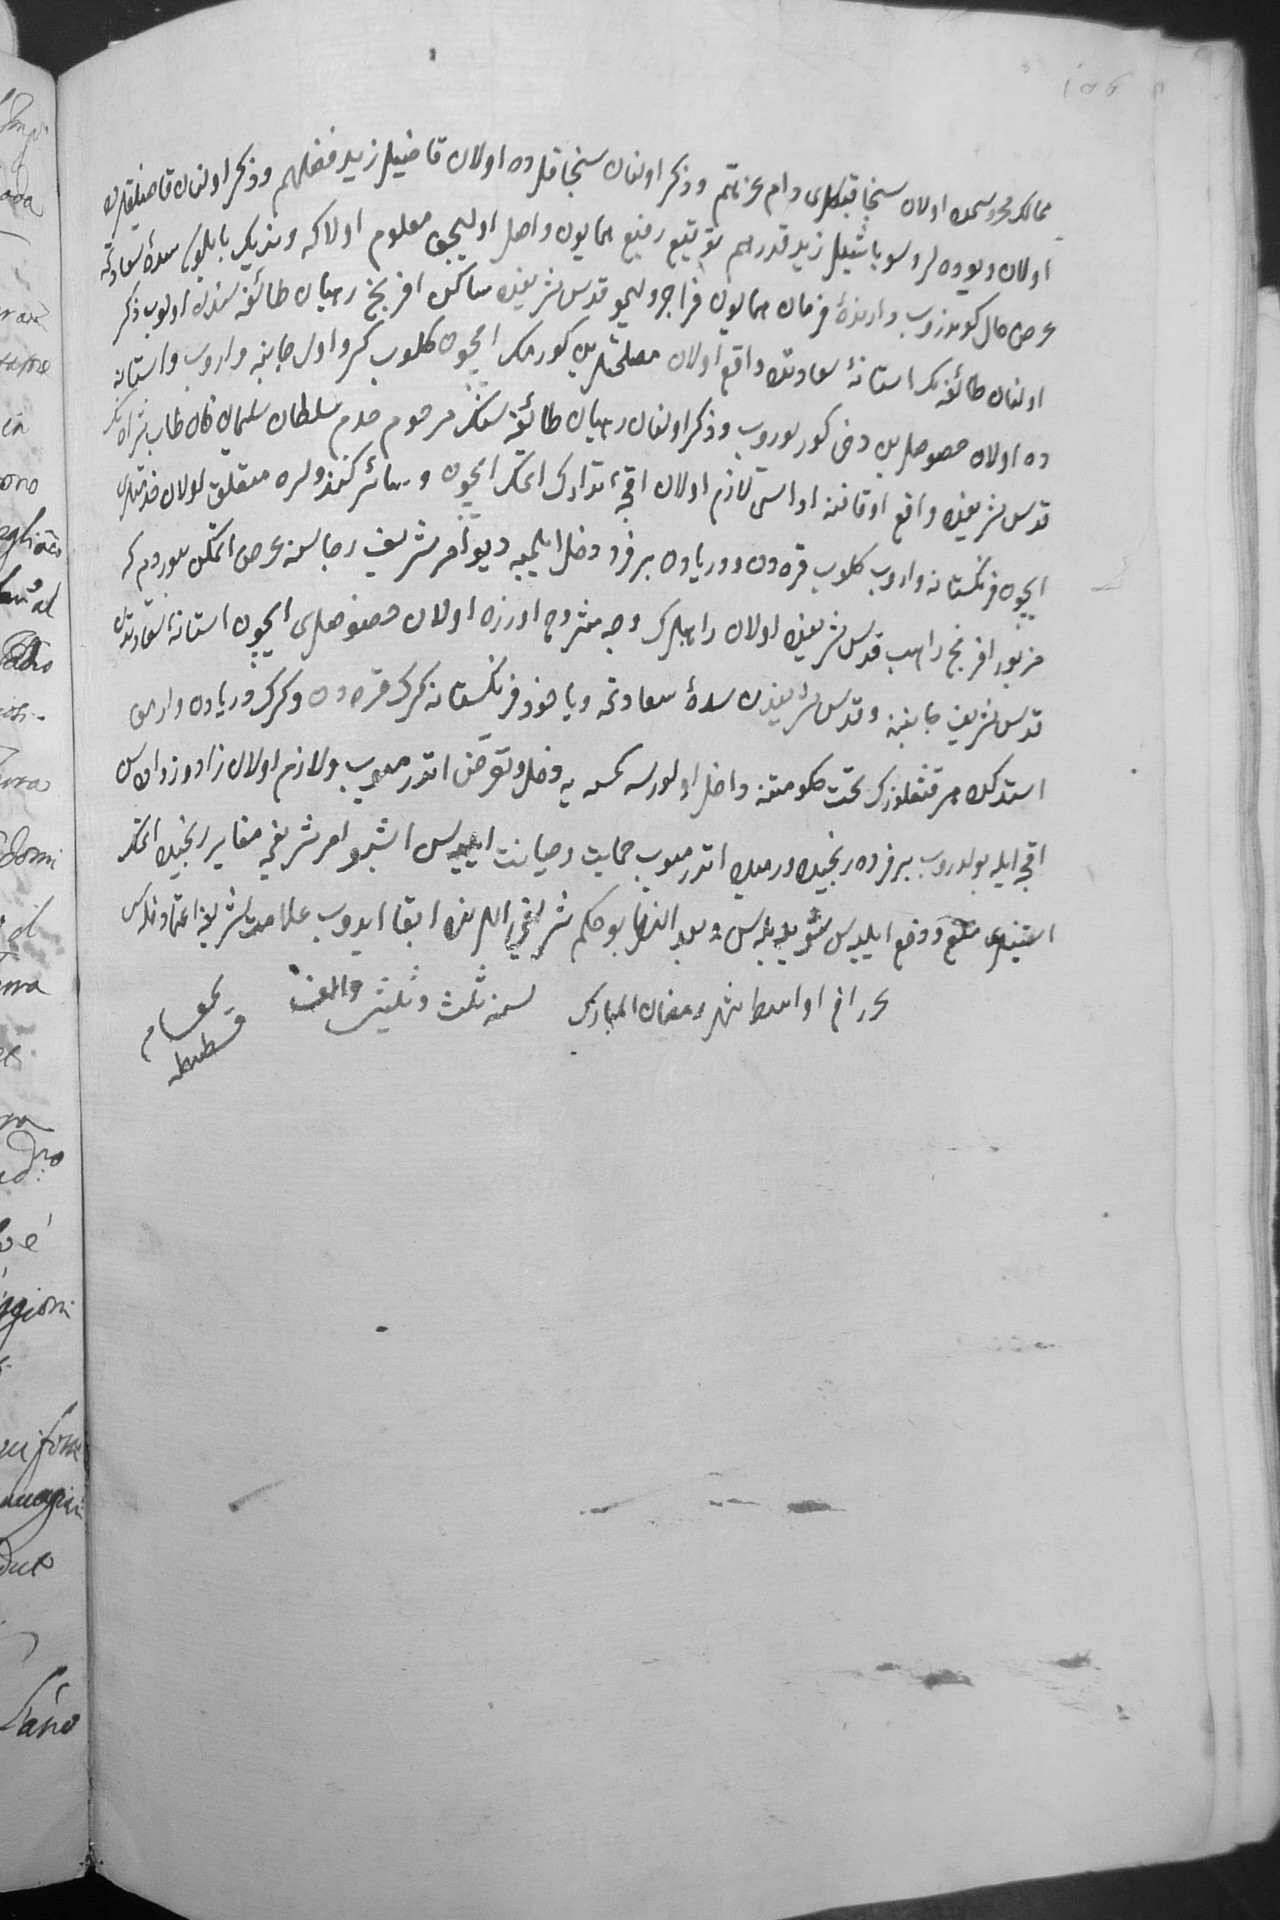 106
ممالك محروسه‌مده اولان سنجاقبكلرى دام عزهم و ذكر اولنان سنجاقلرده اولان قاضيلر زيد فضلهم و ذكر اولنان قاضيلقلرده
اولان ويوده لر و سوباشيلر زيد قدرهم توقيع رفيع همايون واصل اوليجق معلوم اولا كه ونديك بايلوسى سدۀ سعادتمه
عرض حال كوندروب دارندۀ فرمان همايون قدس شريفده ساكن افرنج رهبان طائفه سندن اولوب ذكر
اولنان طائفه نك استانۀ سعادتده واقع اولان مصلحتلرين كورمك ايچون كلوب كيرو اول جانبه واروب و استانه
ده اولان خصوصلرين دخى كوريوروب و ذكر اولنان رهبان طائفه سنك مرحوم جدم سلطان سليمان خان طاب ثراه نك
قدس شريفده واقع اوقافنه اداسى لازم اولان اقچه تدارك اتمك ايچون و سائر كندولره متعلق اولان خدمتلرى
ايچون فرنكستانه واروب كلوب قره دن و دريادن بر فرد دخل ايلميه ديو امر شريف رجا اتدوكن عرض اتمكن بيوردم كه
مزبور افرنج راهب قدس شريفده اولان راهبلرك وجه مشروح اوزره اولان خصوصلرى ايچون استانۀ سعادتدن
قدس شريف جانبنه و قدس شريفدن سدۀ سعادتمه و ياخود فرنكستانه كرك قره دن و كرك دريادن وارمق
استدكده هر قنغكوزك تحت حكومتنه داخل اولورسه كمسه يه دخل و تعرض اتدرميوب و لازم اولان زاد و زواده سن
اقچه ايله بولدروب بر فرده رنجيده و رميده اتدرميوب حمايت و صيانت ايليه سن اشبو امر شريفمه مغاير رنجيده اتمك
استينلرى منع و دفع ايليه سن شويله بيله سن و بعد النظر بو حكم شريفمى اللرنده ابقا ايدوب علامت شريفه اعتماد قلاسن
تحريرا فى اواسط شهر رمضان المبارك لسنه ثلث و ثلثين و الف
بمقام
قسطنطنيه